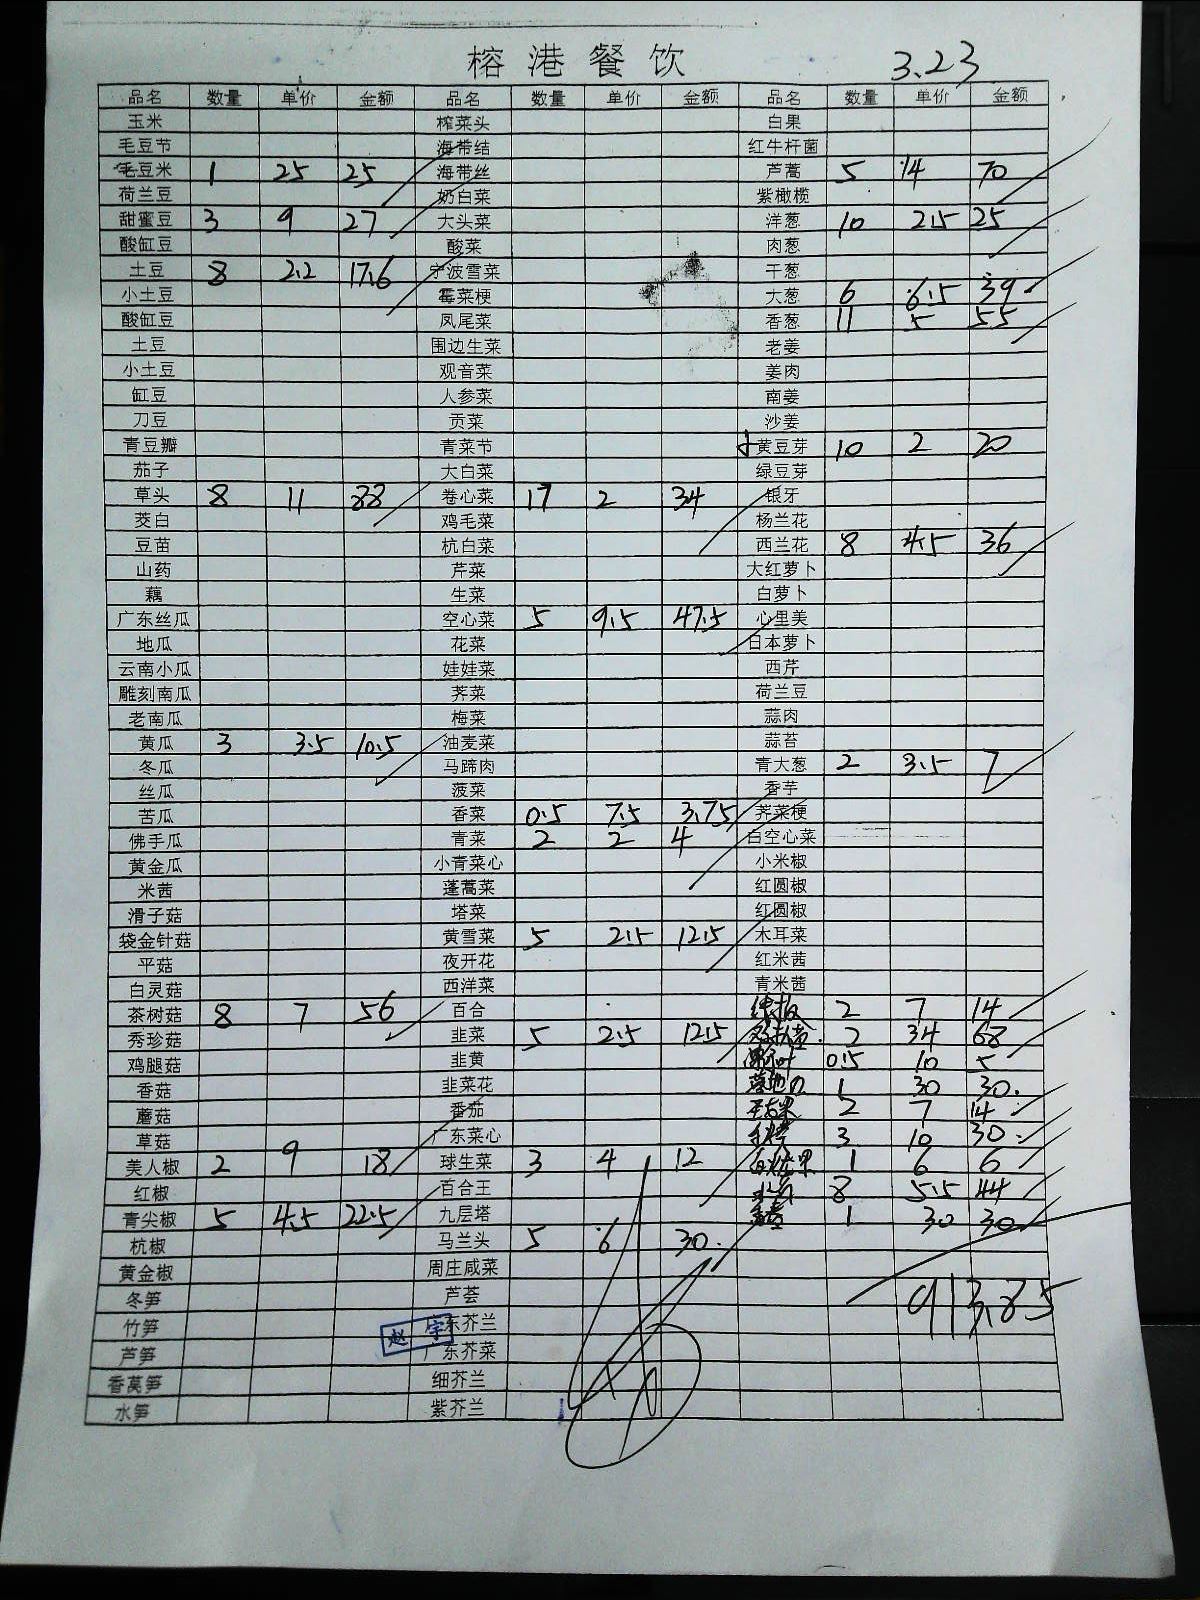 榕港餐饮 3.23
品名 数量 单价 金额 品名 数量 单价 金额 品名 数量 单价 金额
玉米 榨菜头 白果
毛豆节 海带结 红牛杆菌
毛豆米 1 25 25 海带丝 芦蒿 5 14 70
荷兰豆 奶白菜 紫橄榄
甜蜜豆 3 9 27 大头菜 洋葱 10 2.5 25
酸缸豆 酸菜 肉葱
土豆 8 2.2 17.6 宁波雪菜 干葱
小土豆 霉菜梗 大葱 6 6.5 39
酸缸豆 凤尾菜 香葱 11 5 55
土豆 围边生菜 老姜
小土豆 观音菜 姜肉
缸豆 人参菜 南姜
刀豆 贡菜 沙姜
青豆瓣 青菜节 黄豆芽 10 2 20
茄子 大白菜 绿豆芽
草头 8 11 88 卷心菜 17 2 34 银牙
茭白 鸡毛菜 杨兰花
豆苗 杭白菜 西兰花 8 4.5 36
山药 芹菜 大红萝卜
藕 生菜 白萝卜
广东丝瓜 空心菜 5 9.5 47.5 心里美
地瓜 花菜 日本萝卜
云南小瓜 娃娃菜 西芹
雕刻南瓜 荠菜 荷兰豆
老南瓜 梅菜 蒜肉
黄瓜 3 3.5 10.5 油麦菜 蒜苔
冬瓜 马蹄肉 青大葱 2 3.5 7
丝瓜 菠菜 香芋
苦瓜 香菜 0.5 7.5 3.75 荠菜梗
佛手瓜 青菜 2 2 4 白空心菜
黄金瓜 小青菜心 小米椒
米茜 蓬蒿菜 红圆椒
滑子菇 塔菜 红圆椒
袋金针菇 黄雪菜 5 2.5 12.5 木耳菜
平菇 夜开花 红米茜
白灵菇 西洋菜 青米茜
茶树菇 8 7 56 百合 2 7 14
秀珍菇 韭菜 5 2.5 12.5 2 34 68
鸡腿菇 韭黄 0.5 10 5
香菇 韭菜花 1 30 30
蘑菇 番茄 2 7 14
草菇 广东菜心 3 10 30
美人椒 2 9 18 球生菜 3 4 12 1 6 6
红椒 百合王 8 5.5 44
青尖椒 5 4.5 22.5 九层塔 1 30 30
杭椒 马兰头 5 6 30
黄金椒 周庄咸菜
冬笋 芦荟 913.85
竹笋 东芥兰
芦笋 广东芥菜
香莴笋 细芥兰
水笋 紫芥兰
赵宇